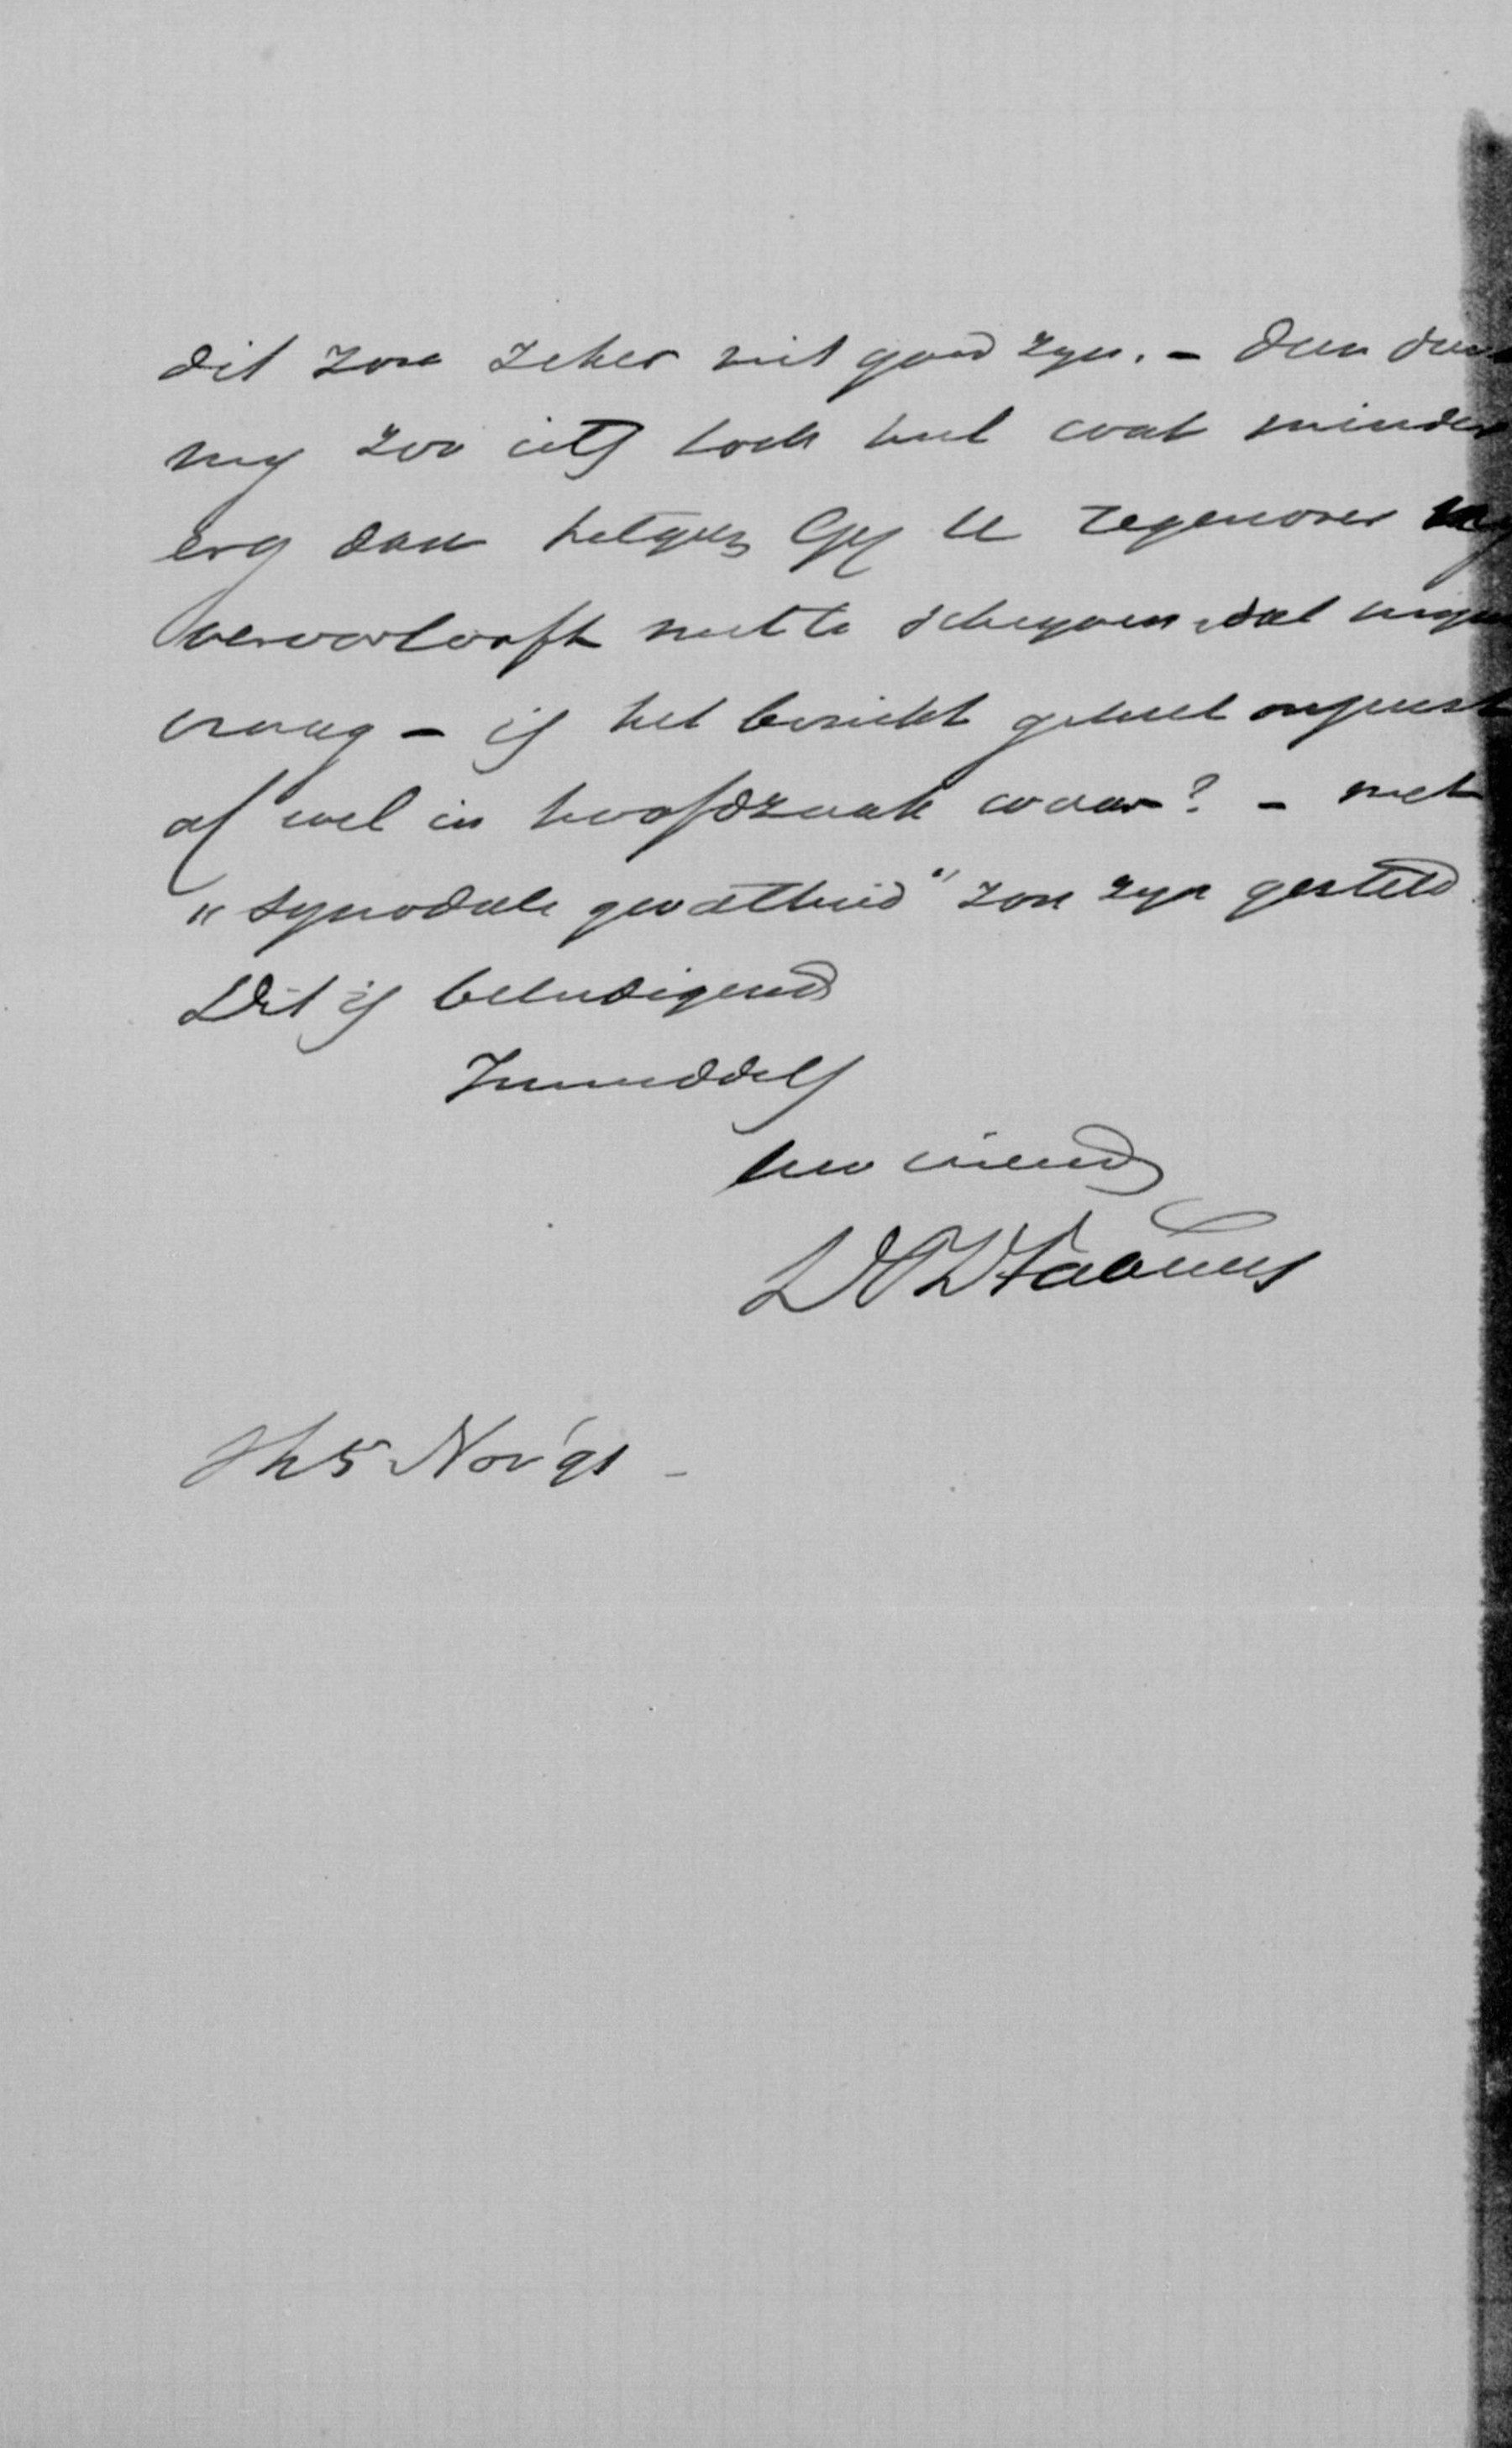 dit zou zeker niet goed zyn. - Dan
my zoo iets toch heel wat minder
erg dan hetgeen Gy U tegenover my
veroorlooft met te schryven, dat myn
vraag - is het bericht geheel onjuist
of wel in hoofdzaak waar? - met
„synodale gevatheid" zou zyn gesteld.
Dit is beleedigend
Inmiddels
Uw vriend
DPDFabius
5 Nov '91 -